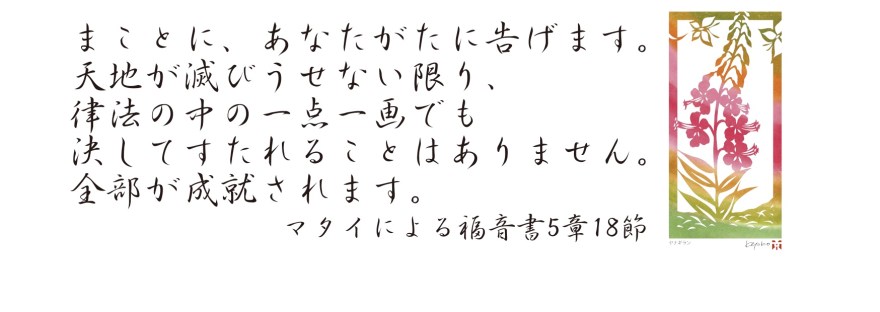 まことに、あなたがたに告げます。
天地が滅びうせない限り、
律法の中の一点一画でも
決してすたれることはありません。
全部が成就されます。
マタイによる福音書5章18節